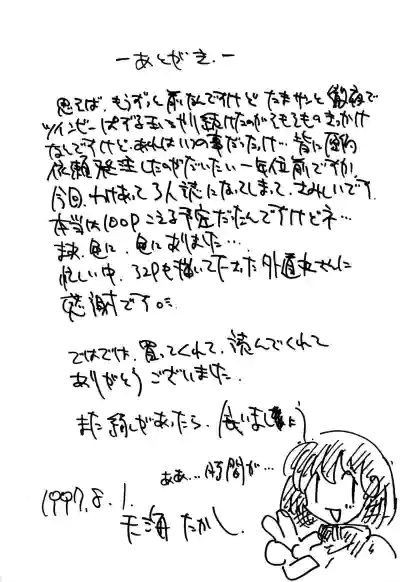 ーあとがき.ー
思えば、もうずっと前なんですけど たまサンと 徹夜で
ツインビーぱずるだまをやり続けたのがそもそものきっかけ
なんですけど、あれはいつの事だったけ… 皆に原稿
依頼発注したのがだいたい一年位前ですか、
今回、わけあって3人誌になってしまって、さみしいです。
本当は100Pこえる予定だったんですけどネ…
まぁ、色々、色々ありました…
忙しい中、32Pも描いて下さった外道丸さんに
感謝です。
ではでは、買ってくれて、読んでくれて
ありがとう ございました.
また縁があったら、
ああ… 時間が…
1997.8.1.
天海 たかし